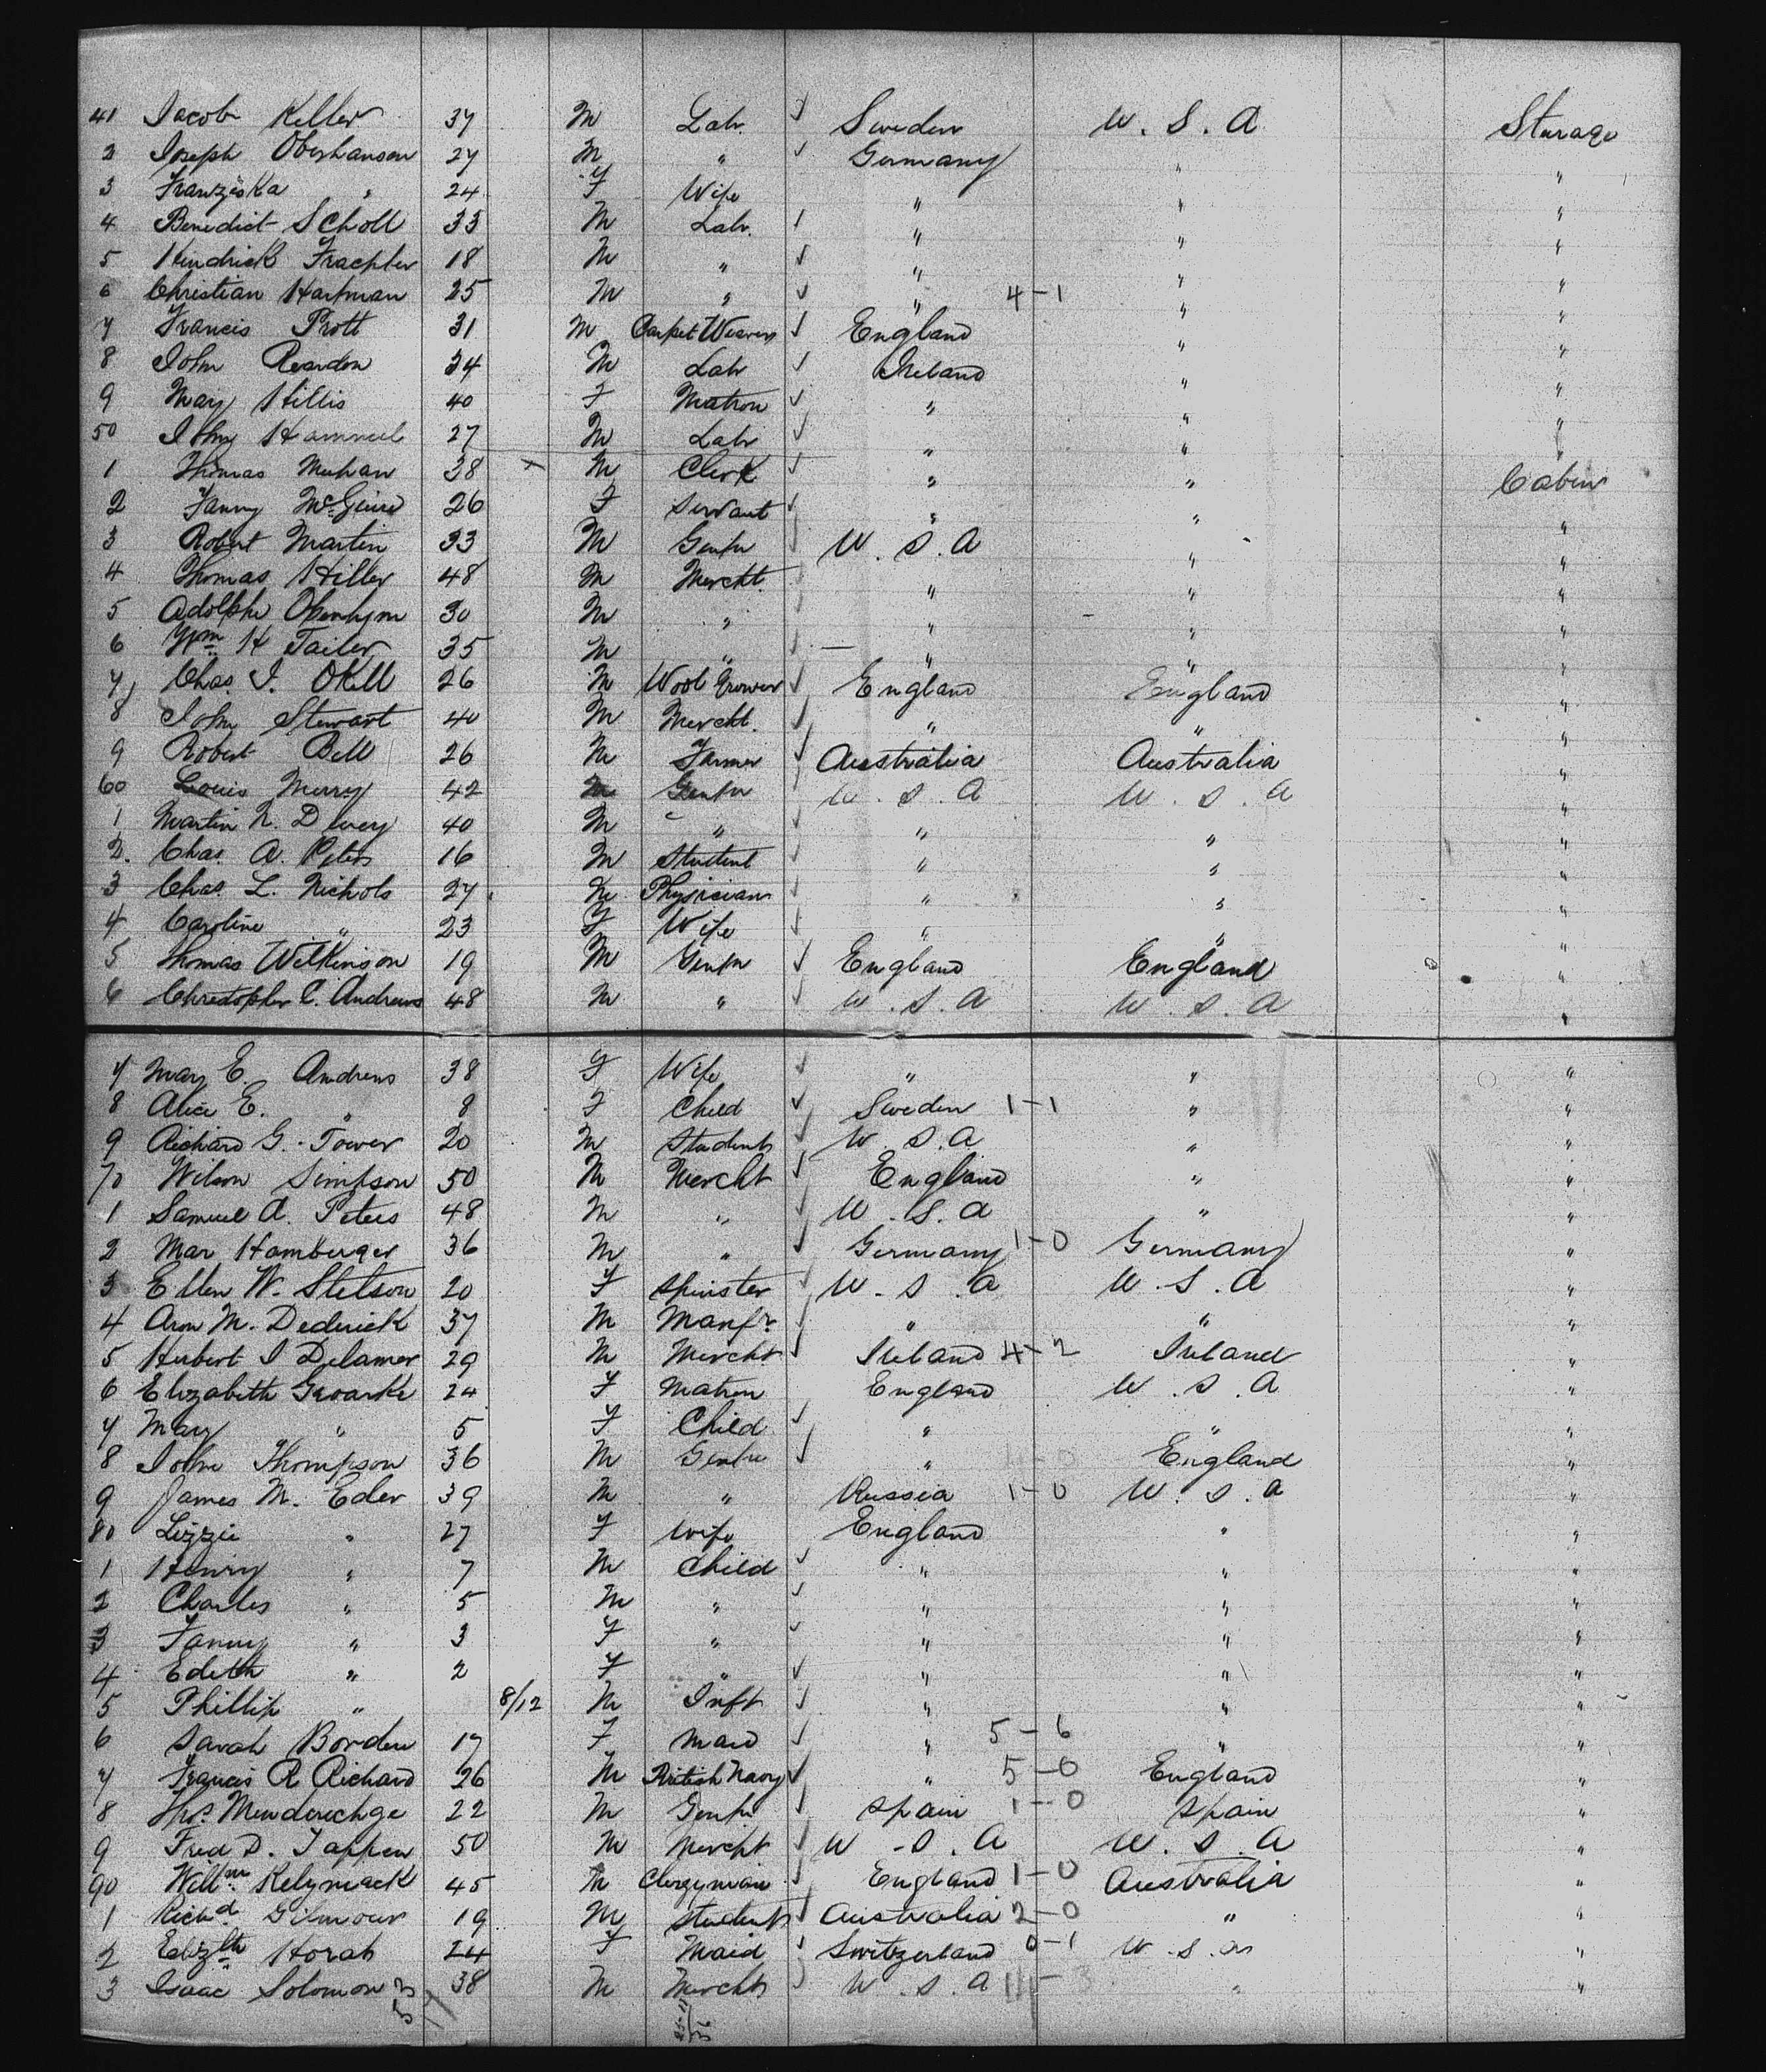 41 Jacob Keller 37 M Labr. Sweden U.S.A Sturage
2 Joseph Obershanson 27 M " Germany " "
3 Franziska " 24 F Wife " " "
4 Benedict Scholl 33 M Labr. " " "
5 Hendrick 18 M " " " "
6 Christian Hartman 25 M " " 4-1 " "
7 Francis Prott 31 M Carpet Weaver England " "
8 John Reardon 34 M Labr Ireland " "
9 Mary Hillis 40 F Matron " " "
50 John Hammel 27 M Labr " " "
1 Thomas Meehan 38 M Clerk " " Cabin
2 Fanny McGuire 26 F Servant " " "
3 Robert Martin 33 M Gentn U.S.A " "
4 Thomas Hiller 48 M Mercht. " " "
5 Adolphe 30 M " " " "
6 Wm H Tailer 35 M " " " "
7 Chas. J. OKell 26 M Wool Grower England England "
8 John Stewart 40 M Mercht. " " "
9 Robert Bell 26 M Farmer Australia Australia "
60 Louis Murry 42 M Gentn U.S.A U.S.A "
1 Martin N. 40 M " " " "
2. Chas. A. Peters 16 M Student " " "
3 Chas. L. Nichols 27 M Physician " " "
4 Caroline " 23 F Wife " " "
5 Thomas Wilkinson 19 M Gentn England England "
6 Christopher C. Andrews 48 M " U.S.A U.S.A "
7 Mary E. Andrews 38 F Wife " " "
8 Alice E. " 8 F Child Sweden 1-1 " "
9 Richard G. Tower 20 M Student U.S.A " "
70 Wilson Simpson 50 M Mercht England " "
1 Samuel A. Peters 48 M " U.S.A " "
2 Mar Hamburger 36 M " Germany 1-0 Germany "
3 Ellen W. Stetson 20 F Spinster U.S.A U.S.A "
4 Aron M. Dederick 37 M Manfr. " " "
5 Hubert J Delamer 29 M Mercht Ireland 4-2 Ireland "
6 Elizabeth Groarke 24 F Matron England U.S.A "
7 Mary " 5 F Child " " "
8 John Thompson 36 M Gentn " England "
9 James M. Eder 39 M " Russia 1-0 U.S.A "
80 Lizzie " 27 F Wife England " "
1 Henry " 7 M Child " " "
2 Charles " 5 M " " " "
3 Fanny " 3 F " " " "
4 Edith " 2 F " " " "
5 Phillip " 8/12 M Inft " " "
6 Sarah Borden 17 F Maid " 5-6 " "
7 Francis R Richard 26 M British Navy " 5-0 England "
8 Thos. 22 M Gentn Spain 1-0 Spain "
9 Fred D. Tappen 50 M Mercht U.S.A U.S.A "
90 Willm. Kelynack 45 M Clergyman England 1-0 Australia "
1 Richd. Gilmour 19 M Student Australia 2-0 " "
2 Elizth Horab 24 F Maid Switzerland 0-1 U.S.A "
3 Isaac Solomon 38 M Mercht U.S.A " "